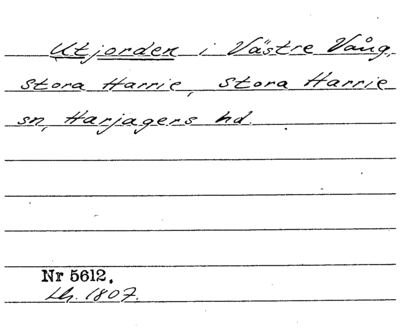 Utjorden i Västre Vång,
Stora Harrie, Stora Harrie
sn, Harjagers hd.
Nr 5612.
Lh. 1807.